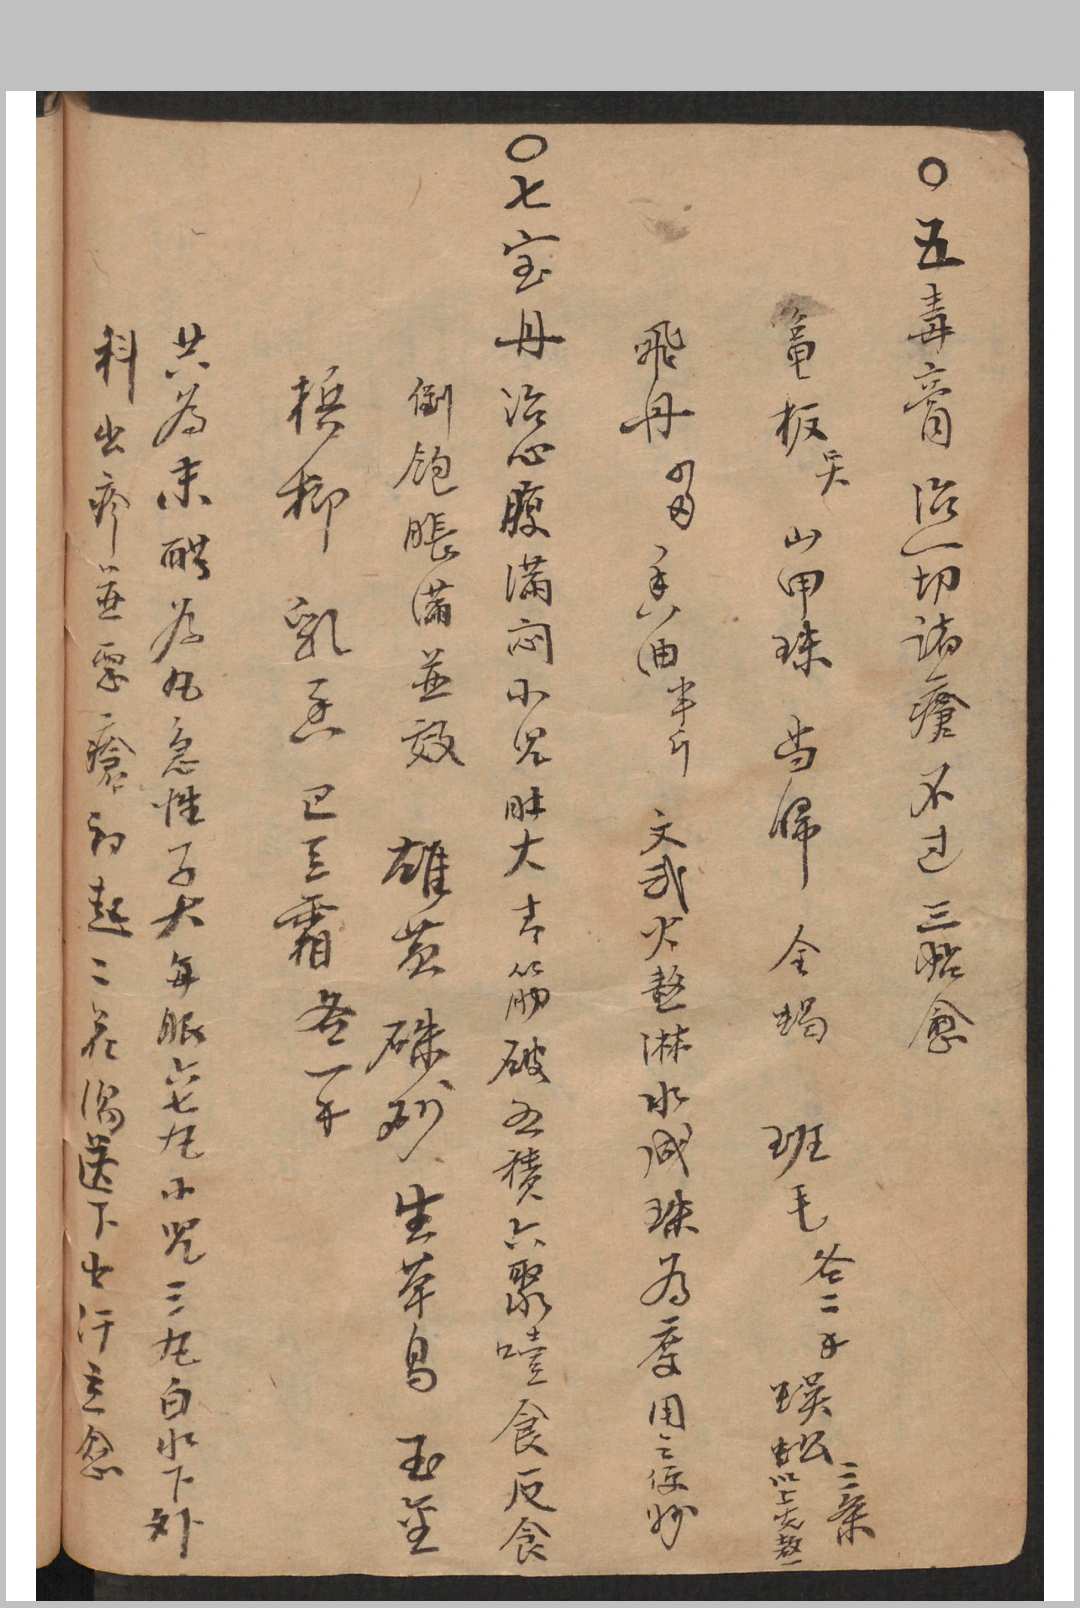 ○五毒膏治一切諸瘡不过三帖愈
龟板 山甲珠 当归 全蝎 班毛各二 蜈蚣三条 以上
飛丹 香油半斤 文武火熬淋水成珠为度用之便妙
○七宝丹治心腹满闷小児肚大青筋破五積六聚噎食反食
倒飽脹满並效 雄黄 硃砂 生草烏 玉金
檳榔 乳香 巴豆霜各一
共为末醋为丸急性子大每服六七丸小児三丸白水下外
科出疹並瘡初起二花湯送下出汗立愈